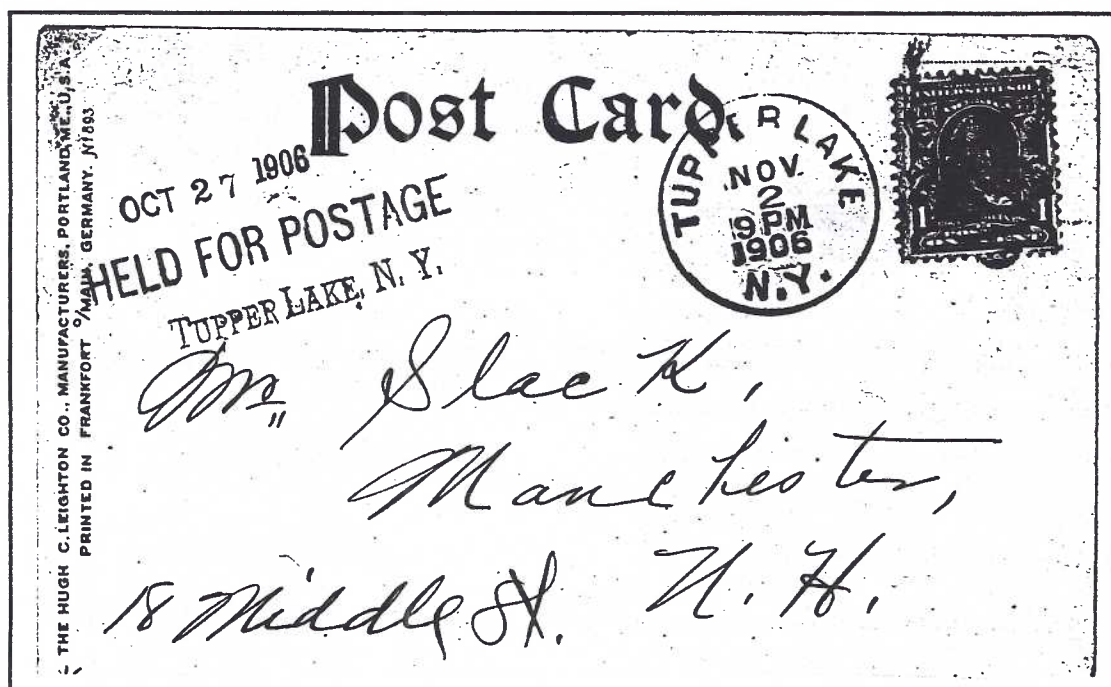 THE HUGH C. LEIGHTON CO., MANUFACTURERS, PORTLAND, ME., U.S.A.
PRINTED IN FRANKFORT o/MAIN, GERMANY. N1893
Post Card
OCT 27 1906
HELD FOR POSTAGE
TUPPER LAKE, N. Y.
TUPPER LAKE
NOV
2
9 PM
1906
N.Y.
1 1
Slack,
Manchester,
18 Middle St. N. H.